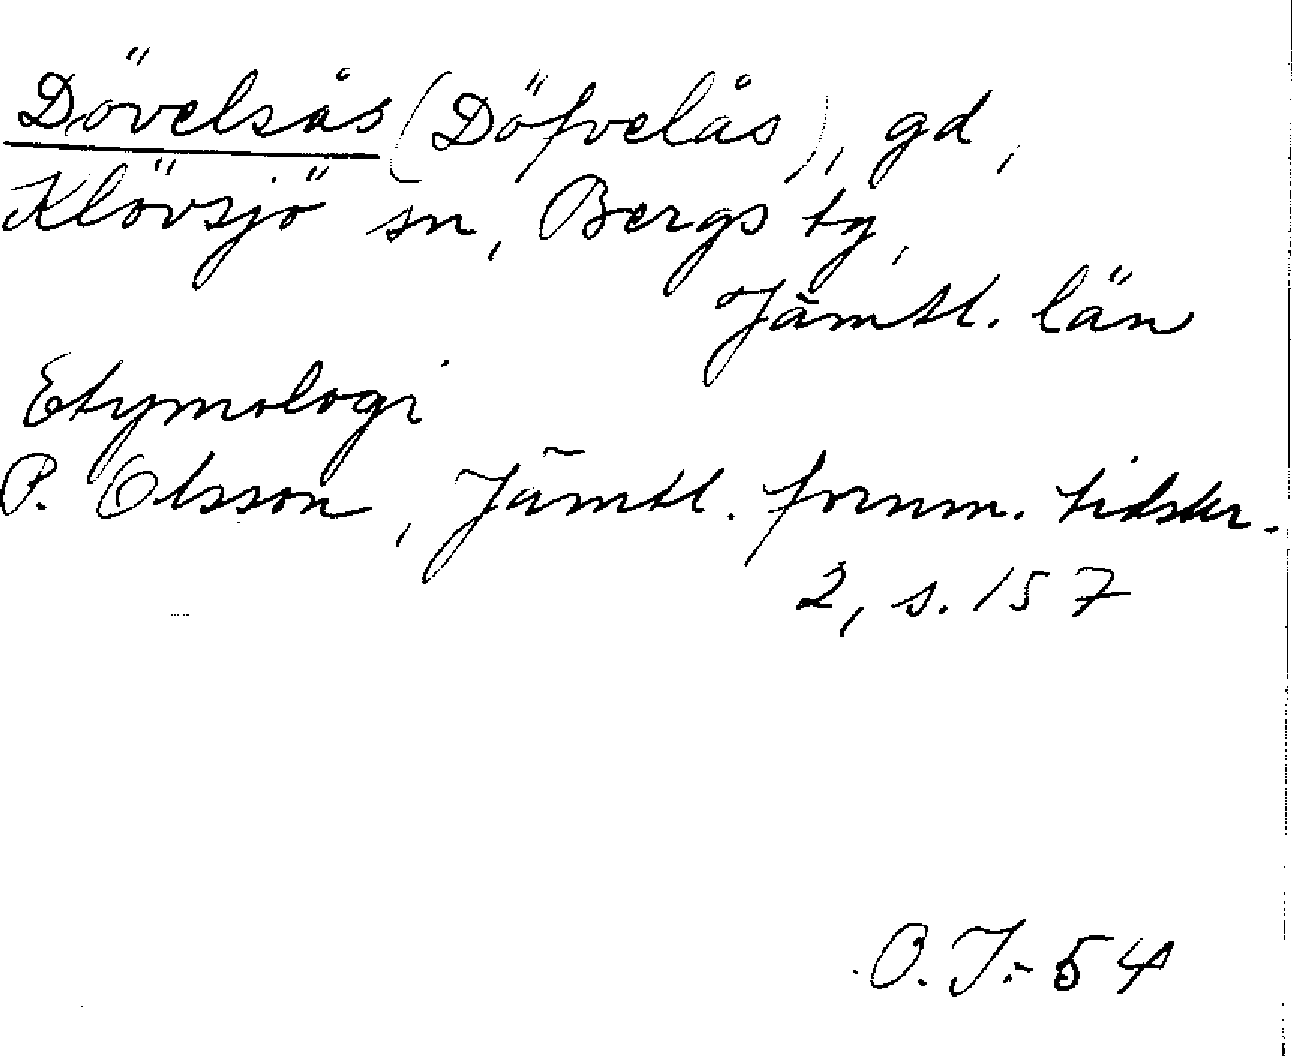 Dövelsås (Döfvelås), gd,
Klövsjö sn, Bergs tg,
Jämtl. län
Etymologi
P. Olsson, Jämtl. fornm. tidskr.
2, s. 157
O. J:-54